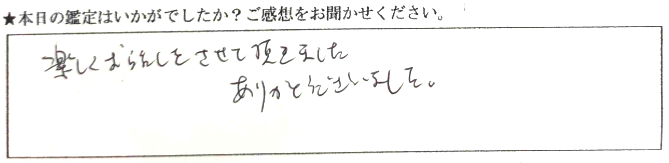 ★本日の鑑定はいかがでしたか？ご感想をお聞かせください。
楽しくお話しをさせて頂きました
ありがとうございました。